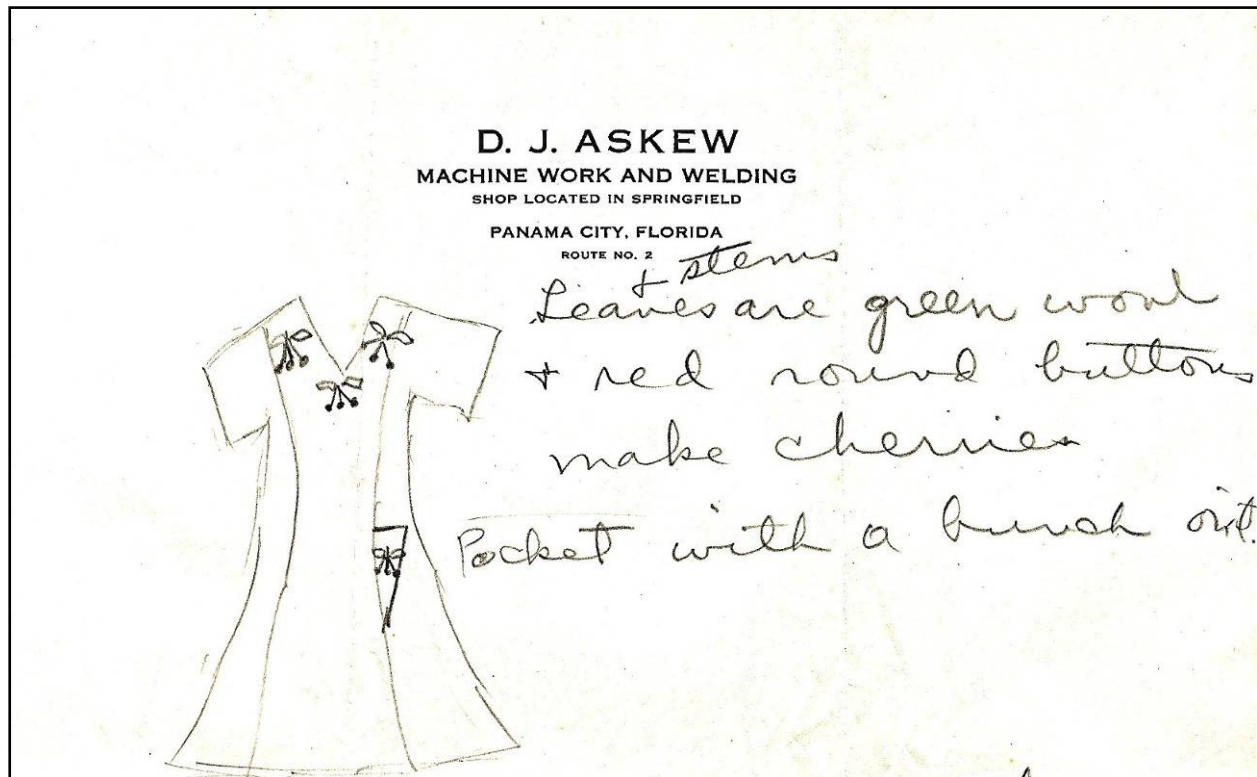 D. J. ASKEW
MACHINE WORK AND WELDING
SHOP LOCATED IN SPRINGFIELD
PANAMA CITY, FLORIDA
ROUTE NO. 2
+ stems
Leaves are green wool
+ red round buttons
make cherries
Pocket with a bunch on it.